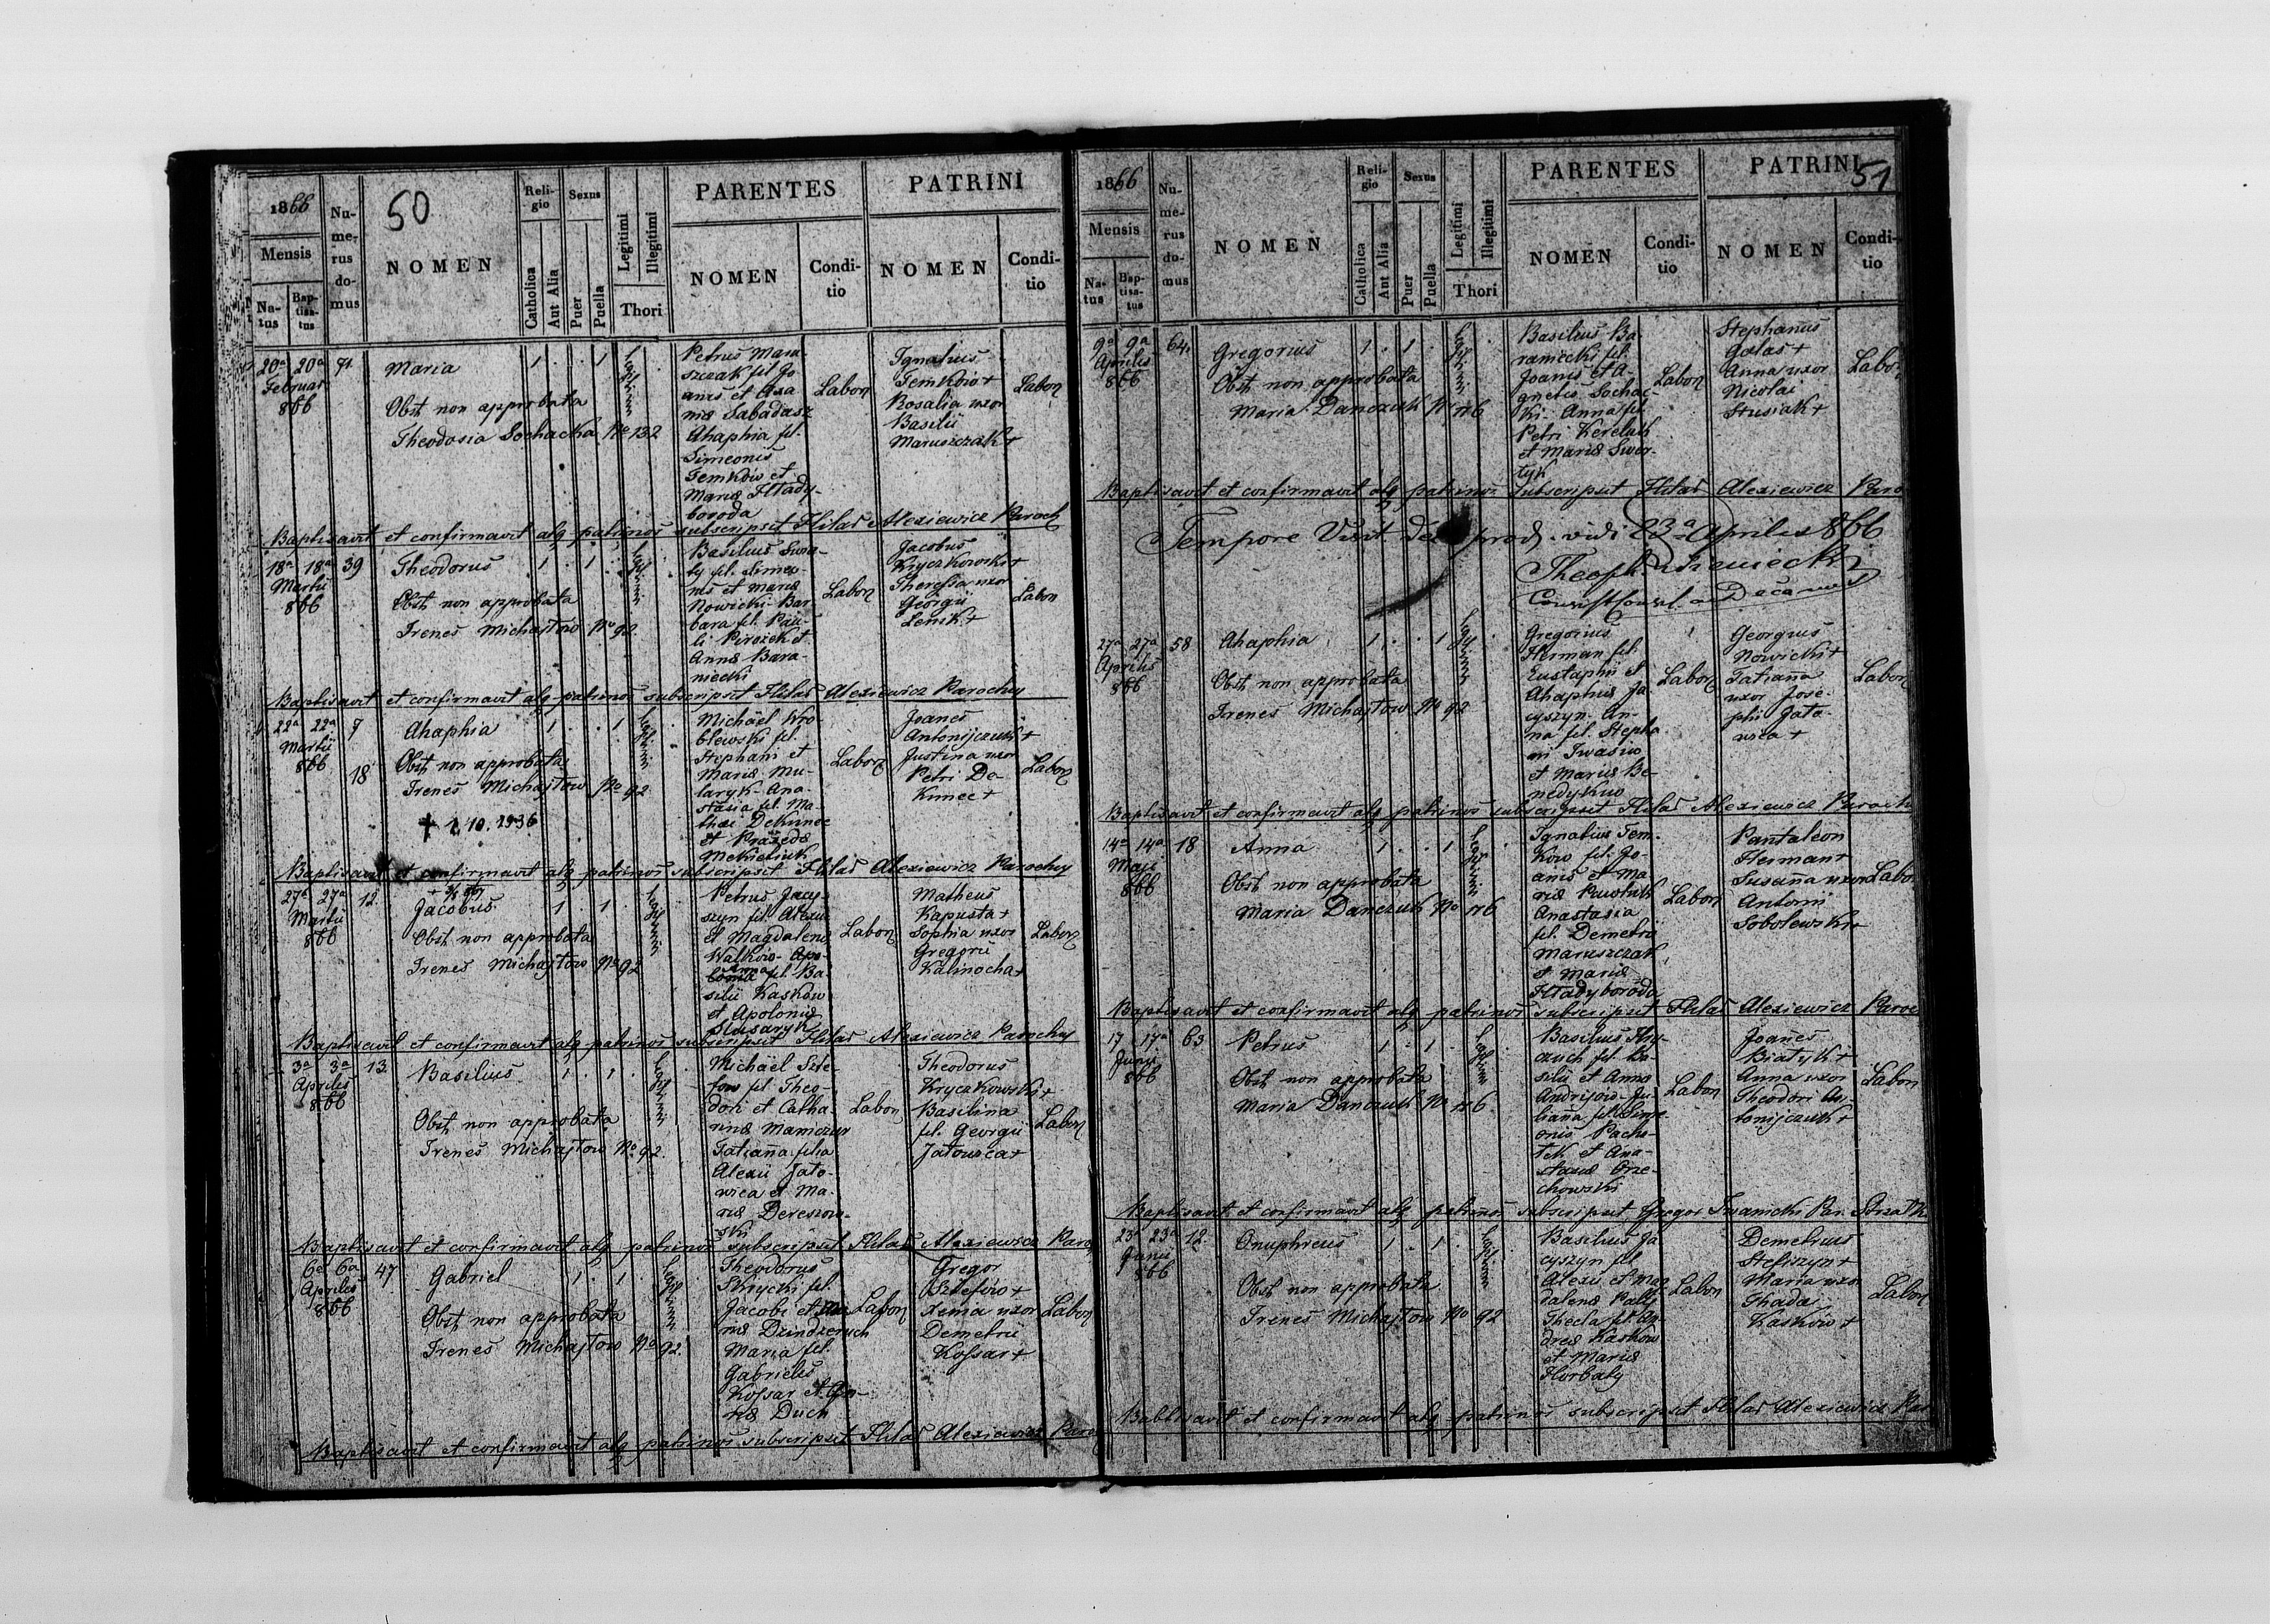 1866
50
Mensis
Na-
tus
Bap-
tisa-
tus
Nu-
me-
rus
do-
mus
NOMEN
Reli-
gio
Catholica
Aut Alia
Sexus
Puer
Puella
Legitimi
Illegitimi
Thori
PARENTES
NOMEN
Condi-
tio
PATRINI
NOMEN
Condi-
tio
20a 20a
Februar
866
Maria
1 . . 1
Obst non approbata
Theodosia Sochacka No 132
Petrus Maru-
szczak fil Jo
anis et Axa
niæ Sabadasz
Ahaphia fil.
Simeonis
Temków et
Mariæ Hłady-
boroda
Labor
Ignatius
Temków +
Rosalia uxor
Basilii
Maruszczak +
Labor
Baptisavit et confirmavit atq patrinos subscripsit Hilar Alexiewicz Paroch
18a 18a 39
Martii
866
Theodorus
1 . 1 .
Obst non approbata
Irenes Michajłow No 92
Basilius
fil. Simeo-
nis et Mariæ
Nowicki - Bar
bara fil. Pau-
li Pirożek et
Annæ Bara-
niecki
Labor
Jacobus
Kryczkowski +
Theresia uxor
Georgii
Labor
Baptisavit et confirmavit atq patrinos subscripsit Hilar Alexiewicz Parochus
22a 22a 7
Martii
866
18
Ahaphia
1 . . 1
Obst non approbata
Irenes Michajłow No 92
+ 1.10.1936
Michäel Wro-
blewski fil.
Stephani et
Mariæ Mu-
laryk - Ana-
stasia fil. Ma-
thæi Dekunec
et Praxedæ
Mekieliuk
Labor
Joanes
Antonijczuk +
Justina uxor
Petri De-
kunec +
Labor
Baptisavit et confirmavit atq patrinos subscripsit Hilar Alexiewicz Parochus
27a 27a 12
Martii
866
Jacobus
1 . 1 .
Obst non approbata
Irenes Michajłow No 92
Petrus Jacy-
szyn fil. Alexii
et Magdalenæ
Walków - Apo-
Anna
lonia fil. Ba-
silii Kasków
et Apoloniæ
Slusaryk
Labor
Matheus
Kapusta +
Sophia uxor
Gregorii
Kalinocha +
Labor
Baptisavit et confirmavit atq patrinos subscripsit Hilar Alexiewicz Parochus
3a 3a 13
Aprilis
866
Basilius
1 . 1 .
Obst non approbata
Irenes Michajłow No 92
Michäel Szte-
fow fil Theo-
dori et Catha-
rinæ Mamczur
Tatiana filia
Alexii Jato-
wica et Ma-
riæ Dereszow-
ski
Labor
Theodorus
Kryczkowski +
Basilina
fil. Georgii
Jatowica +
Labor
Baptisavit et confirmavit atq patrinos subscripsit Hilar Alexiewicz Paro
6a 6a 47
Aprilis
866
Gabriel
1 . 1 .
Obst non approbata
Irenes Michajłow No 92
Theodorus
Skrycki fil.
Jacobi et Ma
riæ Dzindzeruch
Maria fil.
Gabrielis
Kossar et
Duch
Labor
Gregor
Sztefów +
Xenia uxor
Demetrii
Kossar +
Labor
Baptisavit et confirmavit atq patrinos subscripsit Hilar Alexiewicz Paro
51
1866
Mensis
Na-
tus
Bap-
tisa-
tus
Nu-
me-
rus
do-
mus
NOMEN
Reli-
gio
Catholica
Aut Alia
Sexus
Puer
Puella
Legitimi
Illegitimi
Thori
PARENTES
NOMEN
Condi-
tio
PATRINI
NOMEN
Condi-
tio
9a 9a 64
Aprilis
866
Gregorius
1 . 1 .
Obst non approbata
Maria Danczuk No 116
Basilius Ba
raniecki fil.
Joanis et A-
gnetis Sochac-
ki - Anna fil.
Petri Kereluk
et Mariæ Swer-
tyk
Labor
Stephanus
Galas +
Anna uxor
Nicolai
Stusiak +
Labor
Baptisavit et confirmavit atq patrinos subscripsit Hilar Alexiewicz Paro
Tempore Visit prod. vidi 23a Aprilis 866
Theoph.
27a 27a 58
Aprilis
866
Ahaphia
1 . . 1
Obst non approbata
Irenes Michajłow No 92
Gregorius
Herman fil.
Eustaphii et
Ahaphiæ Ja
cyszyn - An-
na fil. Stepha
ni Iwasiw
et Mariæ Be-
nedykiw
Labor
Georgius
Nowicki +
Tatiana
uxor Jose-
phi Jato-
wica +
Labor
Baptisavit et confirmavit atq patrinos subscripsit Hilar Alexiewicz Paroch
14a 14a 18
Maji
866
Anna
1 . . 1
Obst non approbata
Maria Danczuk No 116
Ignatius Tem-
ków fil. Jo-
anis et Ma-
riæ Pawluk
Anastasia
fil. Demetrii
Maruszczak
et Mariæ
Hładyboroda
Labor
Pantaleon
Herman +
Susana uxor
Antonii
Sobolewski +
Labor
Baptisavit et confirmavit atq patrinos subscripsit Hilar Alexiewicz Paroc
17 17a 63
Junii
866
Petrus
1 . 1 .
Obst non approbata
Maria Danczuk No 116
Basilius Hry-
czuch fil. Ba-
silii et Annæ
Andrijów - Ju-
liana fil. Sime-
onis Pacho-
lek et Ana-
stasiæ Orze-
chowski
Labor
Joanes
Białyk +
Anna uxor
Theodori An-
tonijczuk +
Labor
Baptisavit et confirmavit atq patrinos subscripsit Gregor Iwanicki Par.
23a 23a 12
Junii
866
Onuphrius
1 . 1 .
Obst non approbata
Irenes Michajłow No 92
Basilius Ja
cyszyn fil
Alexii et Mag
dalenæ Palij
Thecla fil An-
dreæ Kasków
et Mariæ
Horbaty
Labor
Demetrius
Stefiszyn +
Maria uxor
Thadæi
Kasków +
Labor
Babtisavit et confirmavit atq patrinos subscripsit Hilar Alexiewicz Par